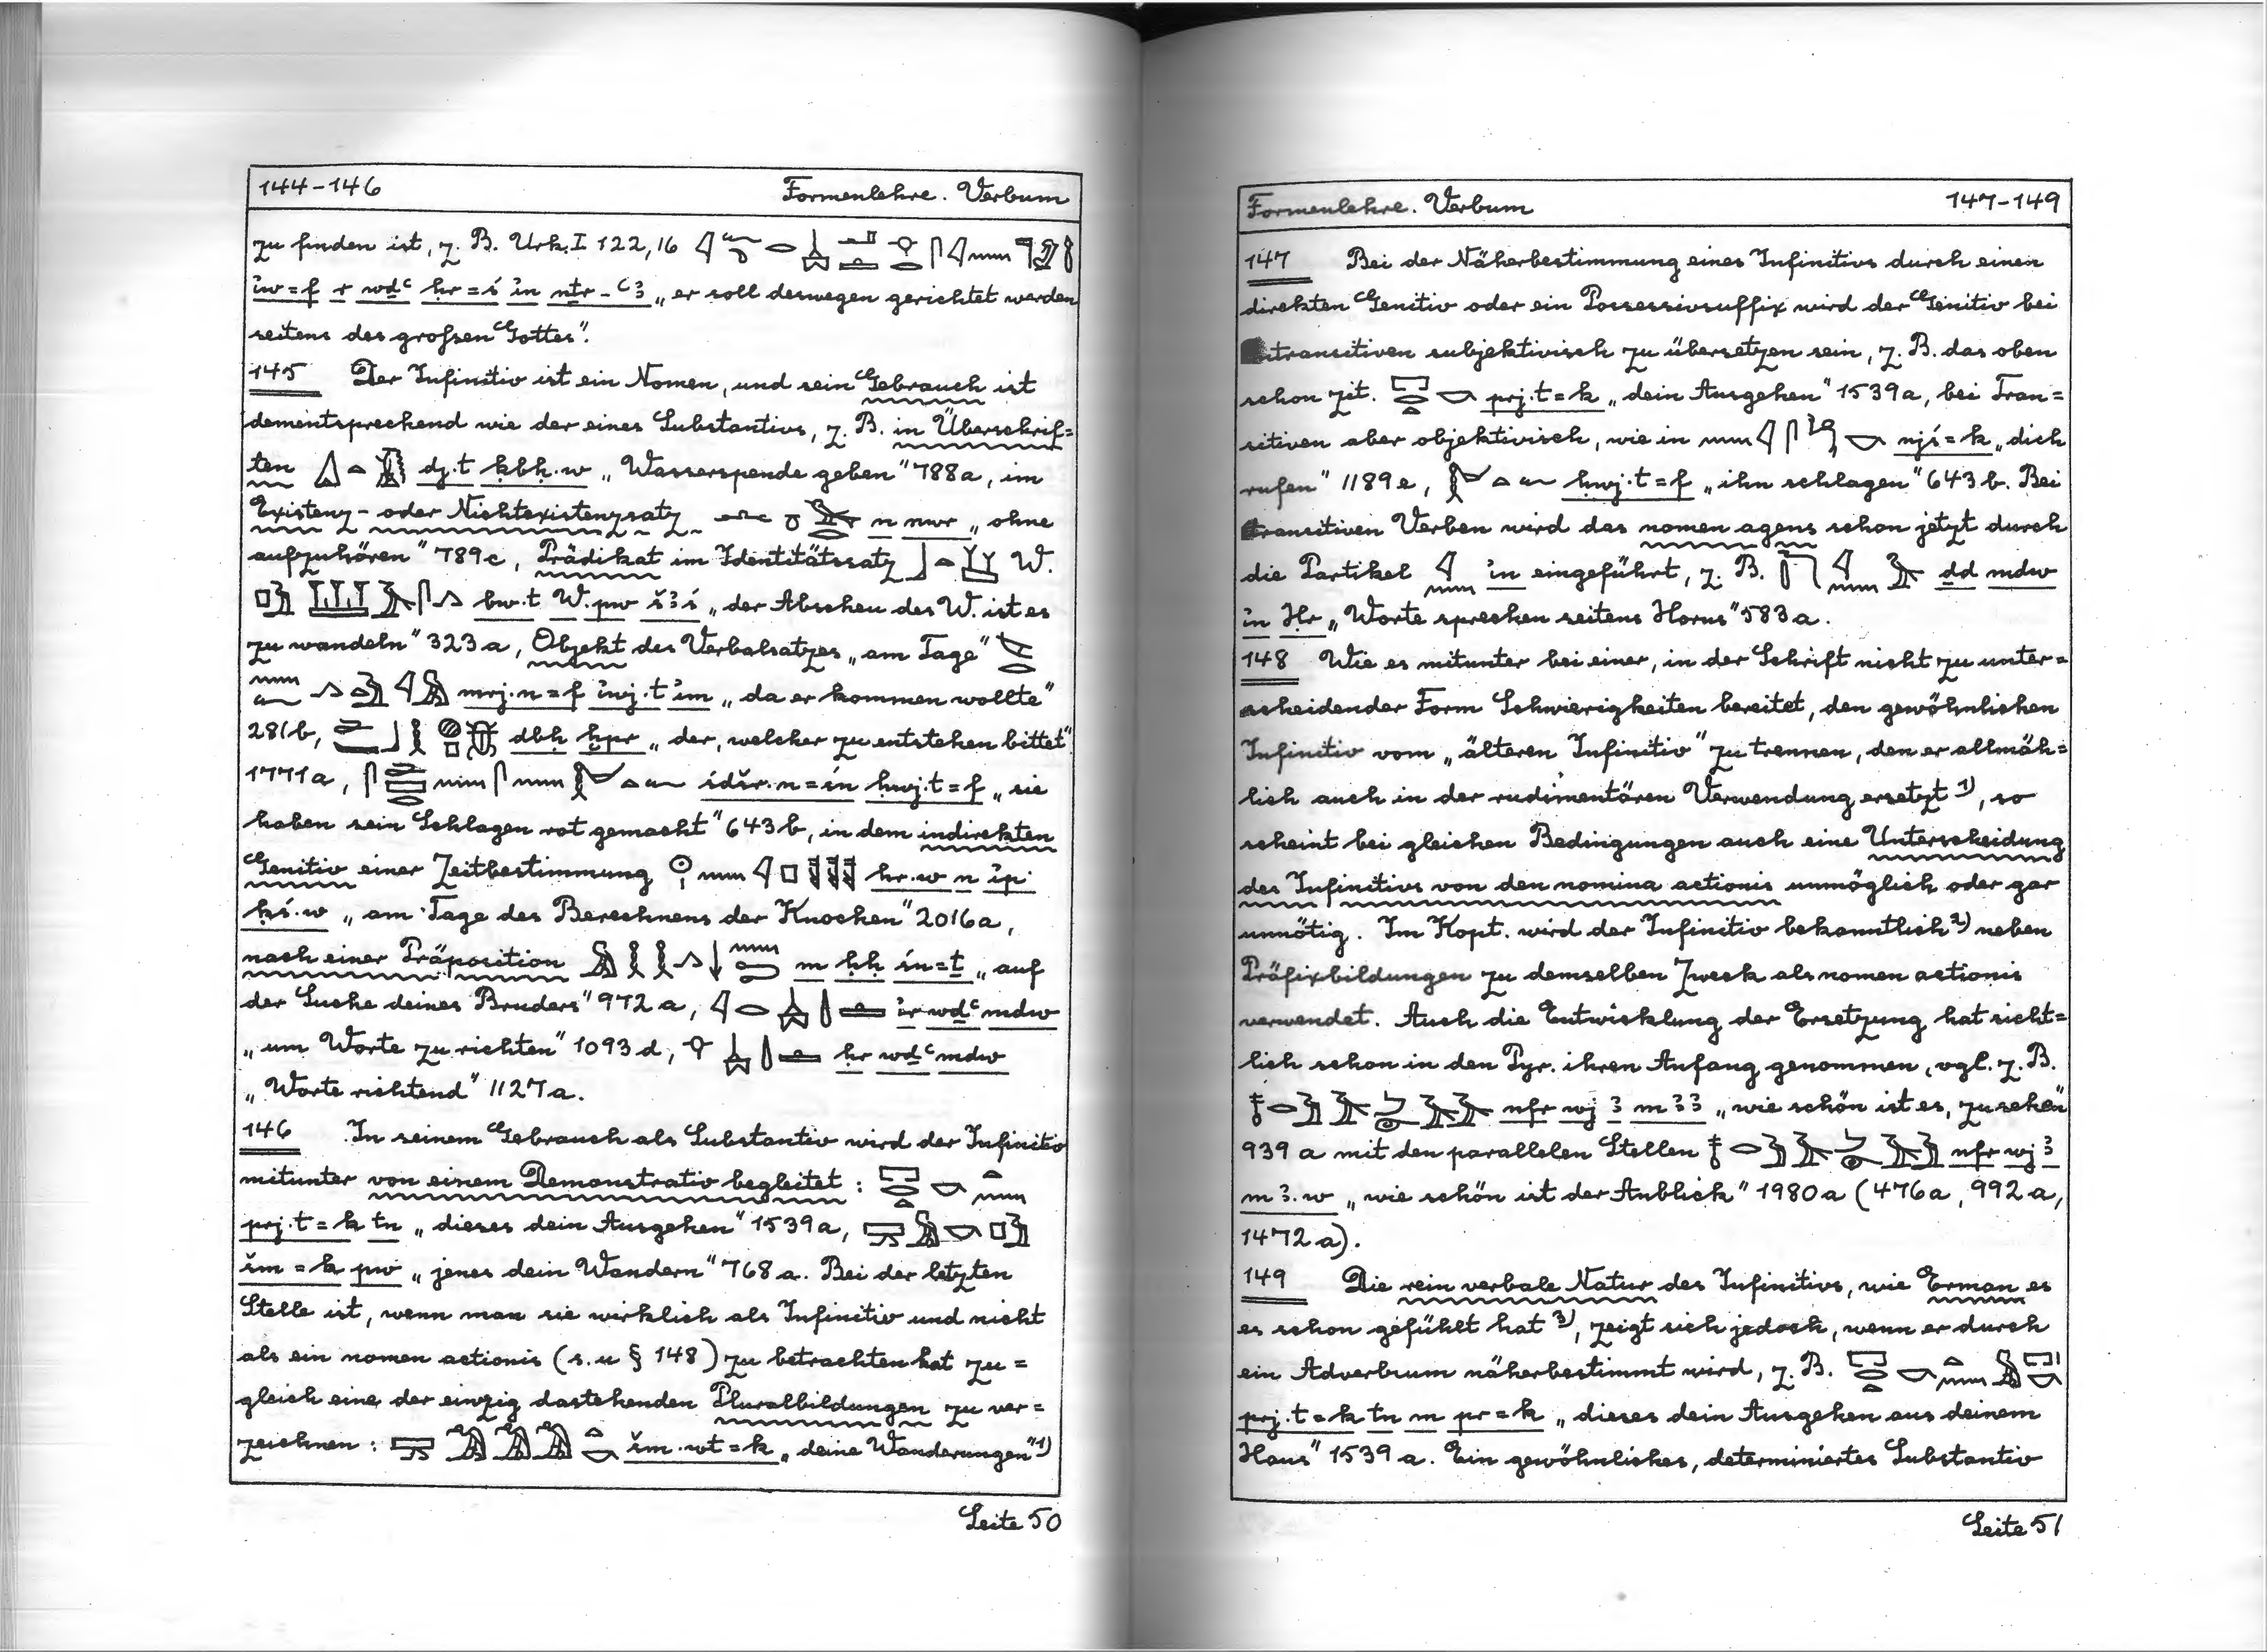 144-146 Formenlehre. Verbum
zu finden ist, z. B. Urk. I 122,16
ἰw=f r wḏꜥ ḥr=ś ἰn nṯr-ꜥꜣ „er soll deswegen gerichtet werden
seitens des großen Gottes".
145 Der Infinitiv ist ein Nomen, und sein Gebrauch ist
dementsprechend wie der eines Substantivs, z. B. in Überschrif=
ten dj.t ḳbḥ.w „Wasserspende geben" 788a, im
Existenz- oder Nichtexistenzsatz n nwr „ohne
aufzuhören" 789c, Prädikat im Identitätssatz W.
bw.t W. pw šꜣś „der Abscheu des W. ist es
zu wandeln" 323a, Objekt des Verbalsatzes „am Tage"
mrj.n=f ἰwj.t ἰm „da er kommen wollte"
281b, dbḥ ḫpr „der, welcher zu entstehen bittet"
1771a, śdšr.n=śn ḥwj.t=f „sie
haben sein Schlagen rot gemacht" 643b, in dem indirekten
Genitiv einer Zeitbestimmung hr.w n ἰp
ḳś.w „am Tage des Berechnens der Knochen" 2016a,
nach einer Präposition m ḥḥ śn=ṯ „auf
der Suche deines Bruders" 972a, ἰr wḏꜥ mdw
„um Worte zu richten" 1093d, ḥr wḏꜥ mdw
„Worte richtend" 1127a.
146 In seinem Gebrauch als Substantiv wird der Infinitiv
mitunter von einem Demonstrativ begleitet:
prj.t=k tn „dieses dein Ausgehen" 1539a,
šm=k pw „jenes dein Wandern" 768a. Bei der letzten
Stelle ist, wenn man sie wirklich als Infinitiv und nicht
als ein nomen actionis (s. u § 148) zu betrachten hat zu=
gleich eine der einzig dastehenden Pluralbildungen zu ver=
zeichnen: šm.wt=k „deine Wanderungen" 1)
Seite 50
Formenlehre. Verbum 147-149
147 Bei der Näherbestimmung eines Infinitivs durch einen
direkten Genitiv oder ein Possessivsuffix wird der Genitiv bei
subjektivisch zu übersetzen sein, z. B. das oben
schon zit. prj.t=k „dein Ausgehen" 1539a, bei Tran=
sitiven aber objektivisch, wie in njś=k „dich
rufen" 1189e, ḥwj.t=f „ihn schlagen" 643b. Bei
transitiven Verben wird das nomen agens schon jetzt durch
die Partikel ἰn eingeführt, z. B. ḏd mdw
ἰn Ḥr „Worte sprechen seitens Horus" 583a.
148 Wie es mitunter bei einer, in der Schrift nicht zu unter=
scheidender Form Schwierigkeiten bereitet, den gewöhnlichen
Infinitiv vom „älteren Infinitiv" zu trennen, den er allmäh=
lich auch in der rudimentären Verwendung ersetzt 1), so
scheint bei gleichen Bedingungen auch eine Unterscheidung
des Infinitivs von den nomina actionis unmöglich oder gar
unnötig. Im Kopt. wird der Infinitiv bekanntlich 2) neben
Präfixbildungen zu demselben Zweck als nomen actionis
verwendet. Auch die Entwicklung der Ersetzung hat sicht=
lich schon in den Pyr. ihren Anfang genommen, vgl. z. B.
nfr wj ꜣ mꜣꜣ „wie schön ist es, zu sehen"
939a mit den parallelen Stellen nfr wj ꜣ
mꜣ.w „wie schön ist der Anblick" 1980a (476a, 992a,
1472a).
149 Die rein verbale Natur des Infinitivs, wie Erman es
es schon gefühlt hat 3), zeigt sich jedoch, wenn er durch
ein Adverbium näherbestimmt wird, z. B.
prj.t=k tn m pr=k „dieses dein Ausgehen aus deinem
Haus" 1539a. Ein gewöhnliches, determiniertes Substantiv
Seite 51